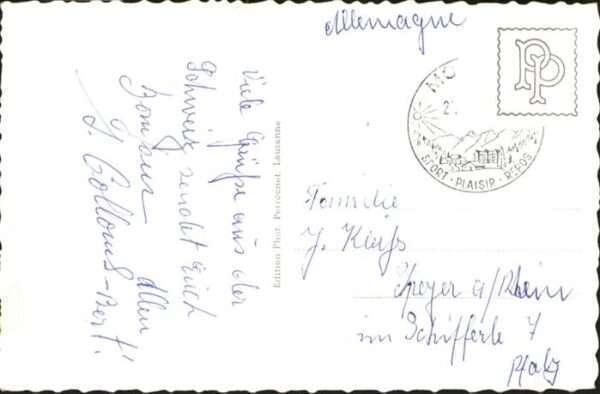 Allemagne
Viele Grüße aus der
Schweiz sendet Euch
Allen
Bonjour
J.
Edition Phot. Perrochet, Lausanne
MO
2.
SPORT - PLAISIR - REPOS
PP
Familie
J.
Speyer a/Rhein
im Schifferle 7
Pfalz